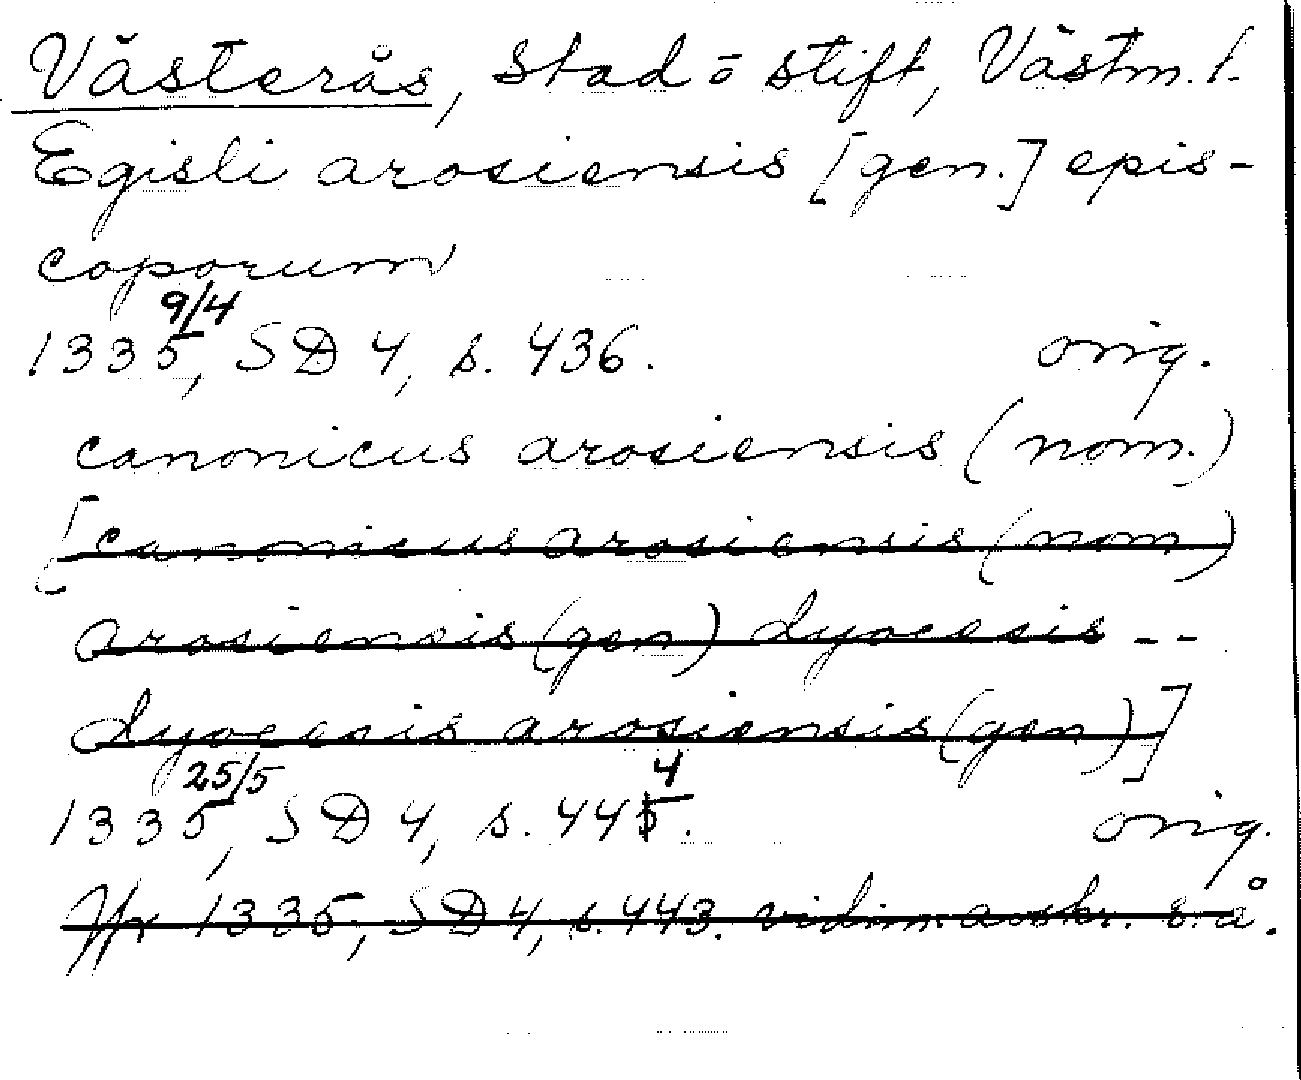 Västerås, stad o stift, Västm. l.
Egisli arosiensis [gen.] epis-
coporum
9/4
1335, SD 4, s. 436. orig.
canonicus arosiensis (nom.)
[canonicus arosiensis (nom)
arosiensis (gen) dyocesis --
dyocesis arosiensis (gen)]
25/5 4
1335, SD 4, s. 445. orig.
Jfr 1335, SD 4, s. 443. vidim. avskr. s. å.